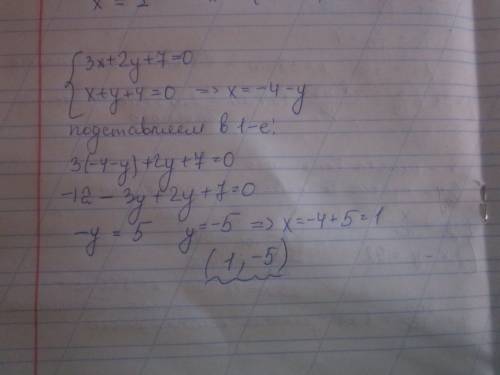 x = 2
3x+2y+7=0
x+y+4=0 => x=-4-y
подставляем в 1-е:
3(-4-y)+2y+7=0
-12-3y+2y+7=0
-y=5 y=-5 => x=-4+5=1
(1,-5)